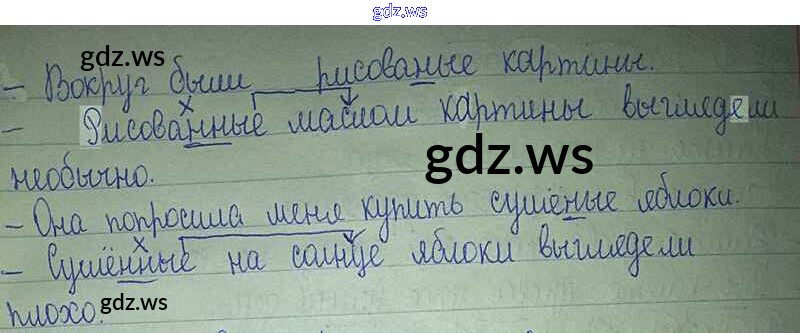 gdz.ws
gdz.ws
- Вокруг были рисованые картины.
- Рисованные маслом картины выглядели
gdz.ws
необычно.
- Она попросила меня купить сушёные яблоки.
- Сушённые на солнце яблоки выглядели
плохо.
gdz.ws